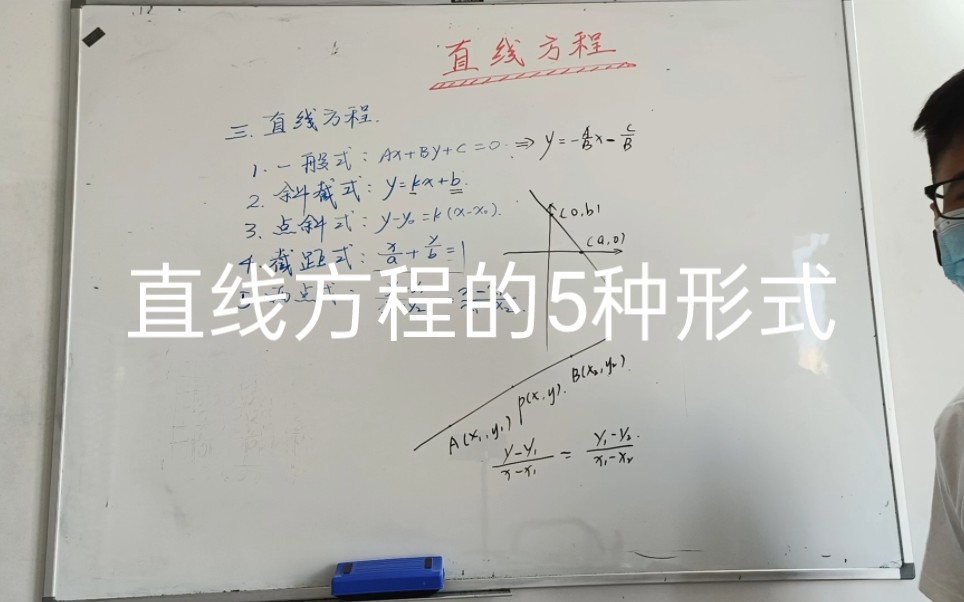 直线方程
三. 直线方程.
1. 一般式: Ax+By+C=0. ⇒ y=-\frac{A}{B}x-\frac{C}{B}
2. 斜截式: y=kx+b.
3. 点斜式: y-y₀=k(x-x₀).
(0,b)
(a,0)
4. 截距式: \frac{x}{a}+\frac{y}{b}=1
直线方程的5种形式
B(x₂,y₂).
P(x,y).
A(x₁,y₁)
\frac{y-y₁}{x-x₁} = \frac{y₁-y₂}{x₁-x₂}.